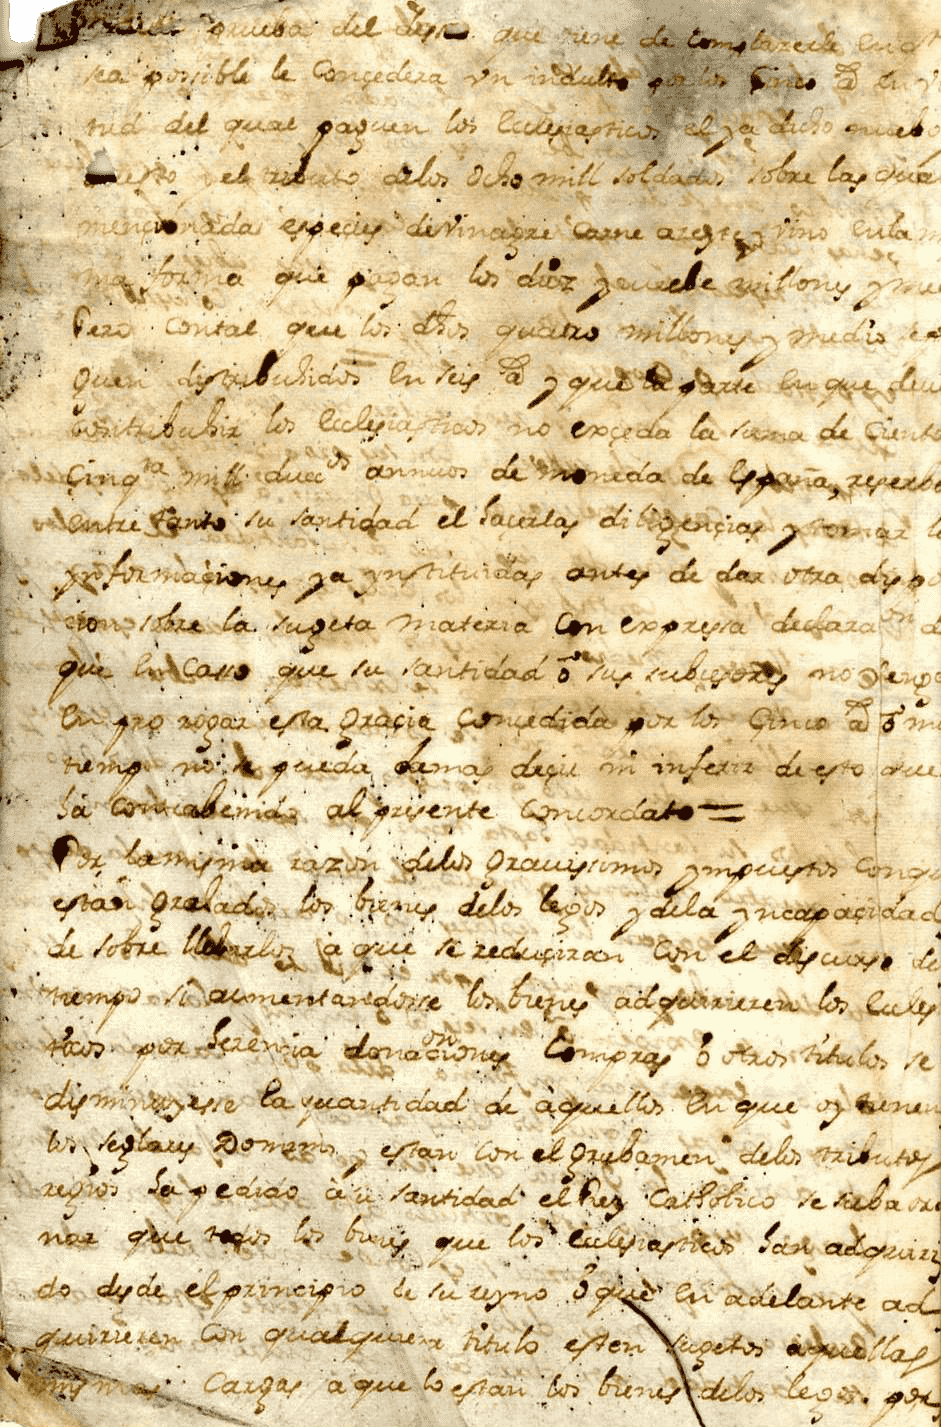 prueba del deseo que tiene de complacerle en qto
sea possible le Conçedera vn indulto por los Cinco as en vir
tud del qual paguen los Eclesiasticos el ya dicho nuebo
y el tributo delos Ocho mill soldados sobre las qua
mençionadas espeçies de vinagre Carne azeyte y vino en la m
ma forma que pagan los diez y nuebe millones y me
Pero Contal que los dhos quatro millones y medio se pa
guen distribuhidos en seis as y que la parte en que deue
Contribuhir los Eclesiasticos no exçeda la suma de Ciento
Çinqta mill ducos annuos de moneda de España, reserba
entre tanto su santidad el haçerlas diligençias y tomar l
ynformaçiones ya ynstituidas antes de dar otra dispo
çion sobre la sugeta materia Con expresa declaraon de
que en Caso que su santidad ò sus subçesores no Venga
en pro rogar esta Graçia Conçedida por los Çinco as ò m
tiempo no se pueda Jamas deçir ni inferir de esto que
ha Contrabenido al presente Concordato =
Por la misma razon delos Grauissimos ympuestos Conqe
estan Grabados los bienes delos legos y dela yncapaçidad
de sobre llebarlos a que se reduçiran Con el discurso de
tiempo si aumentandosse los bienes adquirieren los Ecles
ticos por herençia donaçiones Compras ò otros titulos se
disminuyesse la quantidad de àquellos en que oy tienen
los seglares Dominio y estan Con el Grabamen delos tributos
regios ha pedido à su santidad el Rey Catholico se sirba orde
nar que todos los bienes que los Eclesiasticos han adquiri
do desde el principio de su reyno ò que en adelante ad
quirieren Con qualquiera titulo esten sugetos àquellas
mismas Cargas a que lo estan los bienes delos legos. por